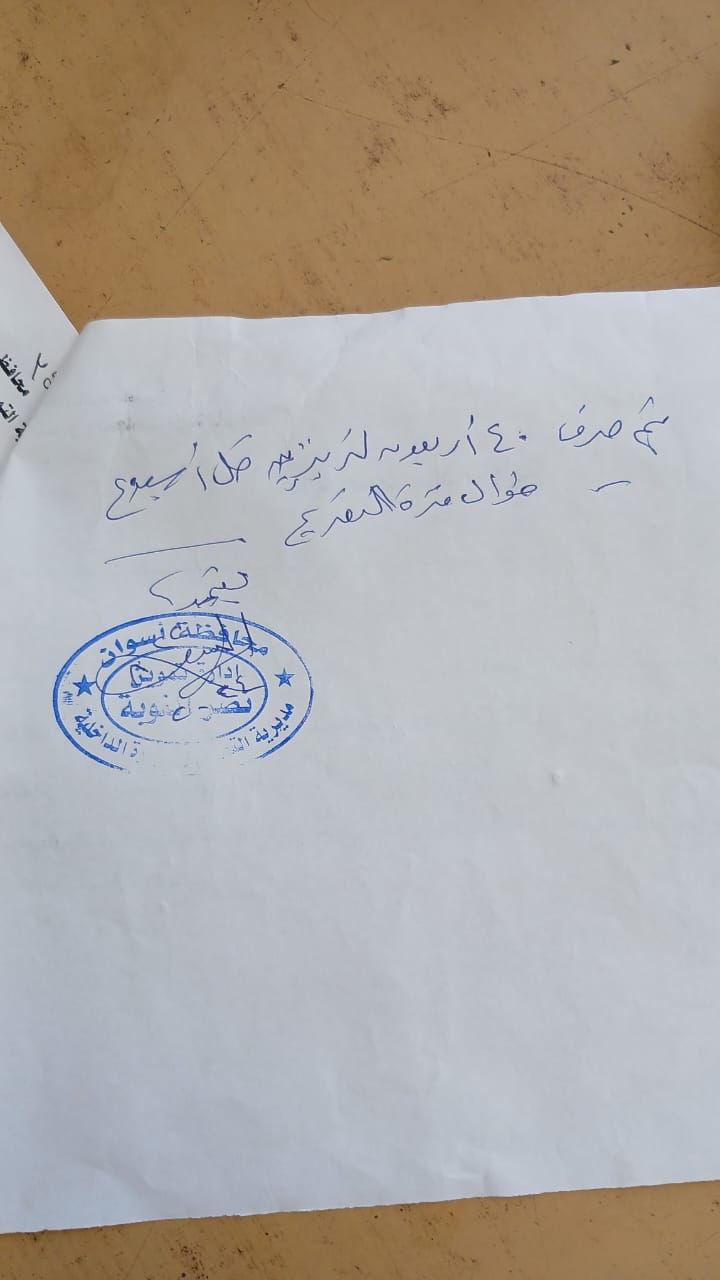 يتم صرف ٤٠ أربعون لتر بنزين كل أسبوع
طوال فترة التصريح
يعتمد
محافظة أسوان
إدارة تموين
نصر النوبة
مديرية الت ة الداخلية
محافظ